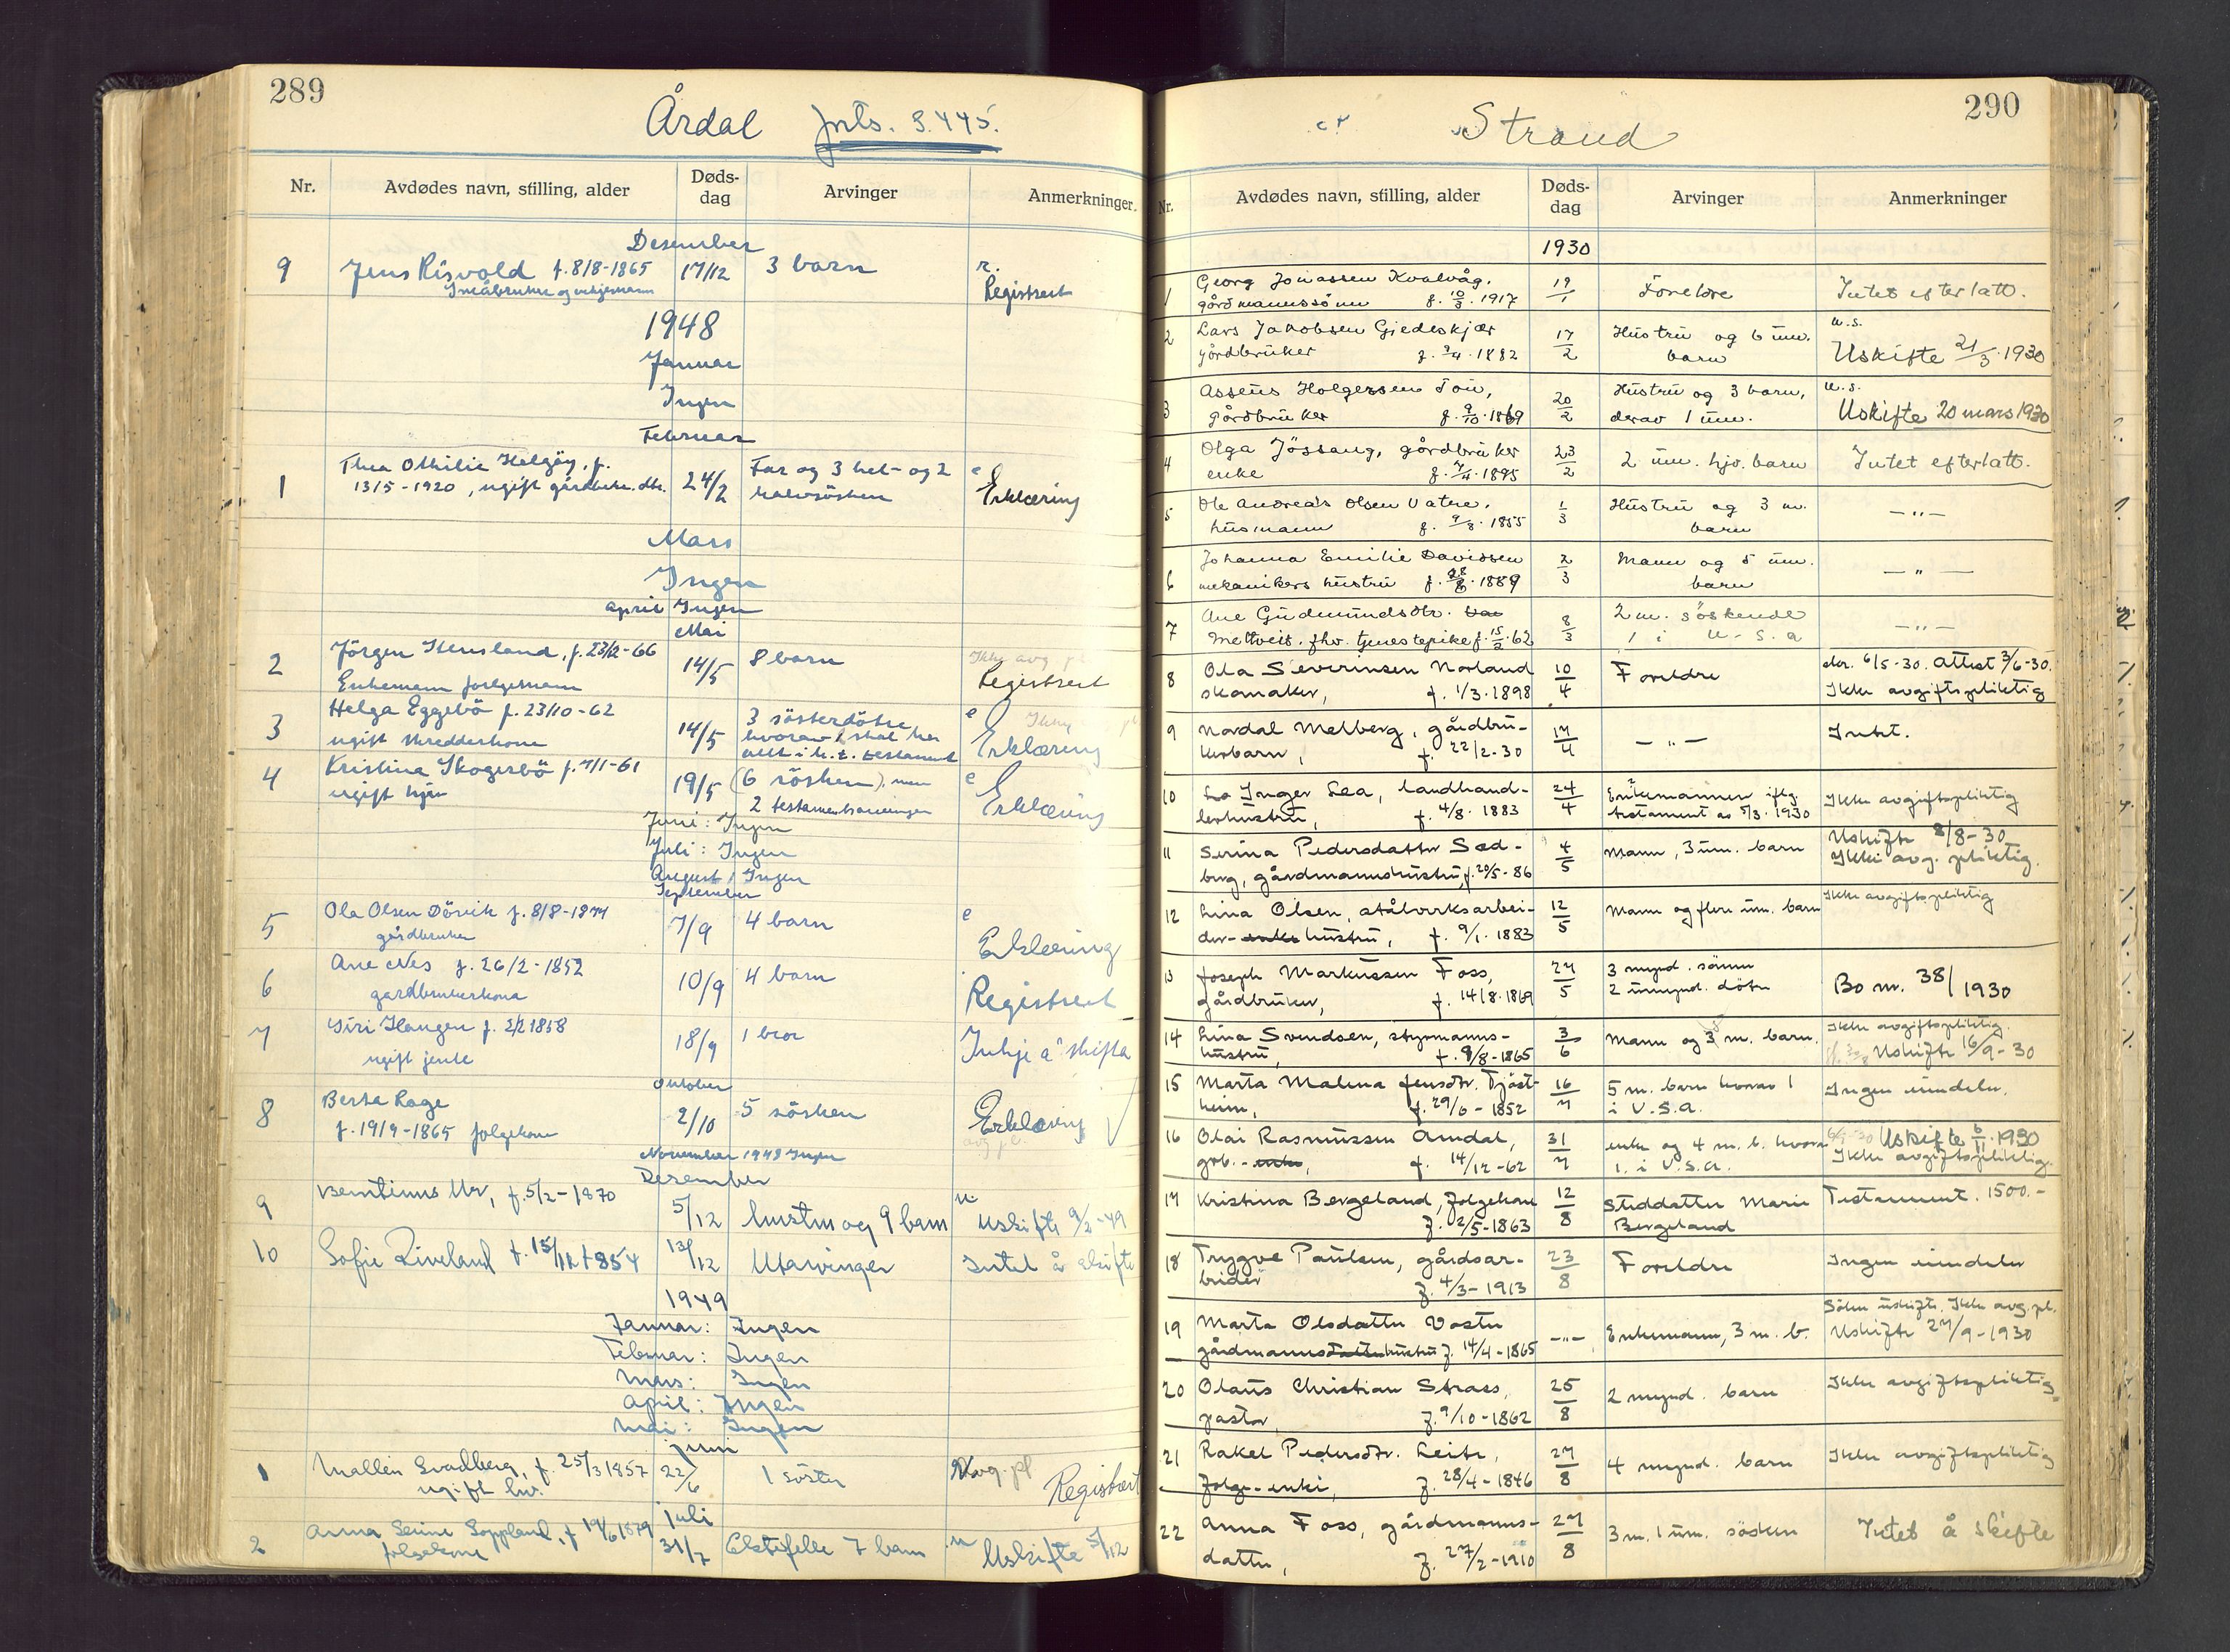 289
Årdal frts. S. 445.
Nr.
Avdødes navn, stilling, alder
Døds-
dag
Arvinger
Anmerkninger.
Desember
9 Jens Risvold f. 8/8-1865 17/12 3 barn r.
Småbruker og Registrert
1948
Januar
Ingen
Februar
1 Thea Othilie Helgøy, f. 24/2 Far og 3 hel- og 2 e
13/5-1920, ugift gårdbrukr. dtr. halvsösken Erklæring
Mars
Ingen
april Ingen
Mai
2 Jörgen f. 23/12-66 14/5 8 barn Ikke avg pl
Enkemann folgemann Registrert
3 Helga Eggebö f. 23/10-62 14/5 3 sösterdötre, e
ugift skredderkone hvorav 1 skal ha Erklæring
allt i h.t. testament
4 Kristina Skogerbö f. 7/1-61 19/5 (6 sösken), men e
ugift 2 testamentsarvinger Erklæring
Juni: Ingen
Juli: Ingen
August: Ingen
September
5 Ola Olsen Dörvik f. 8/8-1874 7/9 4 barn e
gårdbruker Erklæring
6 Ane Nes f. 26/2-1852 10/9 4 barn
gardbrukerkona Registrert
7 Siri Haugen f. 2/2 1858 18/9 1 bror
ugift jente Inkje å skifta
Oktober
8 Berta Rage 2/10 5 sösken Erklæring
f. 19/9-1865 folgekone avg pl.
November 1948 Ingen
Desember
9 Berntinus Ur, f. 5/2-1870 5/12 hustru og 9 barn u
Uskifte 9/2-49
10 Sofie Riveland f. 15/12 1854 13/12 Utarvinger Intet å skifte
1949
Januar: Ingen
Februar: Ingen
Mars: Ingen
April: Ingen
Mai: Ingen
juni
1 Mallin Svadberg, f. 25/3 1857 22/6 1 söster avg. pl
ugift Registrert
juli
2 Anna Serine Soppland, f 19/6 1879 31/7 Ektefelle 7 barn u
folgekone Uskifte 5/12
290
Strand
Nr.
Avdødes navn, stilling, alder
Døds-
dag
Arvinger
Anmerkninger
1930
1 Georg Jonassen Kvalvåg, 19/1 Foreldre Intet efterlatt.
gårdmannssönn f. 10/3 1917
2 Lars Jakobsen Giedeskjær 17/2 Hustru og 6 um. u.s.
gårdbruker f. 2/4 1882 barn Uskifte 21/3 1930
3 Asseus Holgersen Tou, 20/2 Hustru og 3 barn, u.s.
gårdbruker f. 9/10 1869 derav 1 um. Uskifte 20 mars 1930
4 Olga Jössang, gårdbruker 23/2 2 um. hjv. barn Intet efterlatt.
enke f. 7/4 1895
5 Ole Andreas Olsen Vatne, 1/3 Hustru og 3 m. — " —
husmann f. 9/8 1855 barn
6 Johanna Emilie Davidsen 2/3 Mann og 5 um. — " —
mekanikers hustru f. 28/8 1889 barn
7 Ane Gudmundsdtr. 8/3 2 m. söskende — " —
Mettveit, fhv. tjenestepike f. 15/2 62 1 i U-S.A
8 Ola Severinsen Norland 10/4 Foreldre skr. 6/5-30. Attest 3/6-30.
skomaker, f. 1/3-1898 Ikke avgiftspliktig
9 Nordal Melberg, gårdbru- 17/4 — " — Intet.
kerbarn, f. 22/2-30
10 Inger Lea, landhand- 24/4 Enkemannen iflg. Ikke avgiftspliktig
lerhustru, f. 4/8 1883 testament as 5/3 1930
11 Serina Pedersdatter Sed- 4/5 Mann, 3 um. barn Uskifte 8/8-30
berg, gårdmannshustru, f. 20/5-86 Ikke avg. pliktig.
12 Lina Olsen, stålverksarbei- 12/5 Mann og flere um. barn Ikke avgiftspliktig
der- enke hustru, f. 9/1 1883
13 Joseph Markussen Foss, 27/5 3 mynd. sönner
gårdbruker, f. 14/8 1869 2 umynd. dötre Bo nr. 38/1930
14 Lina Svendsen, styrmanns- 3/6 Mann og 3 m. barn. Ikke avgiftspliktig.
hustru, f. 9/8-1865 Uskifte 16/9-30
15 Marta Malena Jensdtr. Tjöst- 16/7 5 m. barn hvorav 1 Ingen eiendeler.
heim, f. 29/6-1852 i U.S.A.
16 Olai Rasmussen Amdal, 31/7 enke og 4 m. b. hvorav Uskifte 6/11 1930
grb. - enke, f. 14/12-62 1. i U.S.A. Ikke avgiftspliktig.
17 Kristina Bergeland, folgekone 12/8 Steddatter Marie Testament. 1500.-
f. 2/5-1863 Bergeland
18 Tryggve Paulsen, gårdsar- 23/8 Foreldre Ingen eiendeler
beider f. 4/3-1913
19 Marta Olsdatter Vostu — " — Enkemann, 3 m. b. Söker uskifte. Ikke avg. pl.
gårdmannsdatter hustru f. 14/4-1865 Uskifte 27/9-1930
20 Olaus Christian Strass, 25/8 2 mynd. barn Ikke avgiftspliktig
pastor, f. 9/10-1862
21 Rakel Pedersdtr. Leite, 27/8 4 mynd. barn Ikke avgiftspliktig
folge-enke, f. 28/4-1846
22 Anna Foss, gårdmanns- 27/8 3 m. 1 um. sösken Intet å skifte
datter, f. 27/2-1910